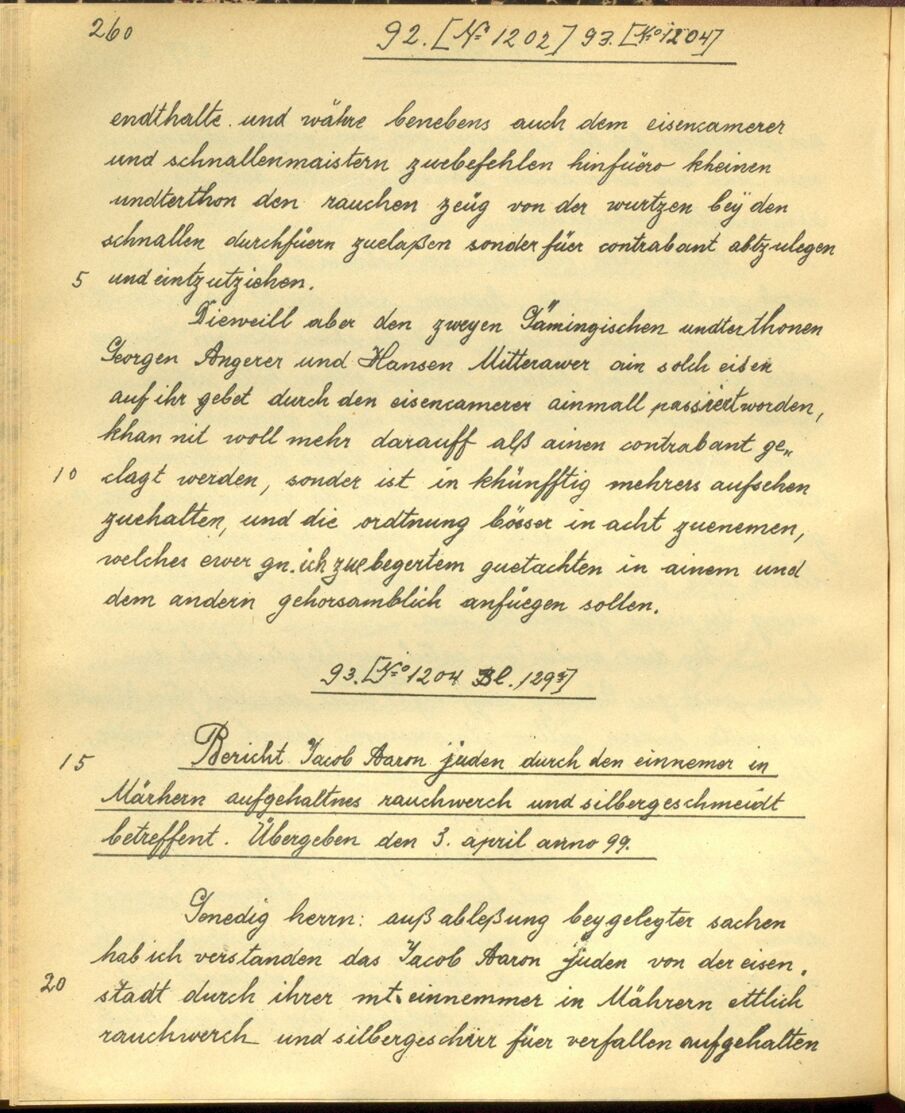 260
92. [No 1202] 93. [No 1204]
endthalte und währe benebens auch dem eisencamerer
und schnallenmaistern zuebefehlen hinfüero kheinen
undterthon den rauchen zeüg von der wurtzen beÿ den
schnallen durchfüern zuelaßen sonder füer contrabant abtzulegen
5 und eintzutziehen.
Dieweill aber den zweyen Gämingischen undterthonen
Georgen Angerer und Hansen Mitterawer ain solch eisen
auf ihr gebet durch den eisencamerer ainmall passiert worden,
khan nit woll mehr darauff alß ainen contrabant ge„
10 clagt werden, sonder ist in khünfftig mehrers aufsehen
zuehalten, und die ordtnung bösser in acht zuenemen,
welches ewer gn. ich zue begertem guetachten in ainem und
dem andern gehorsamblich anfüegen sollen.
93. [No 1204 Bl. 129]
15 Bericht Jacob Aaron juden durch den einnemer in
Märhern aufgehaltnes rauchwerch und silbergeschmeidt
betreffent. Übergeben den 3. april anno 99.
Genedig herrn: auß ableßung beygelegter sachen
hab ich verstanden das Jacob Aaron juden von der eisen„
20 stadt durch ihrer mt. einnemmer in Mährern ettlich
rauchwerch und silbergeschirr füer verfallen aufgehalten